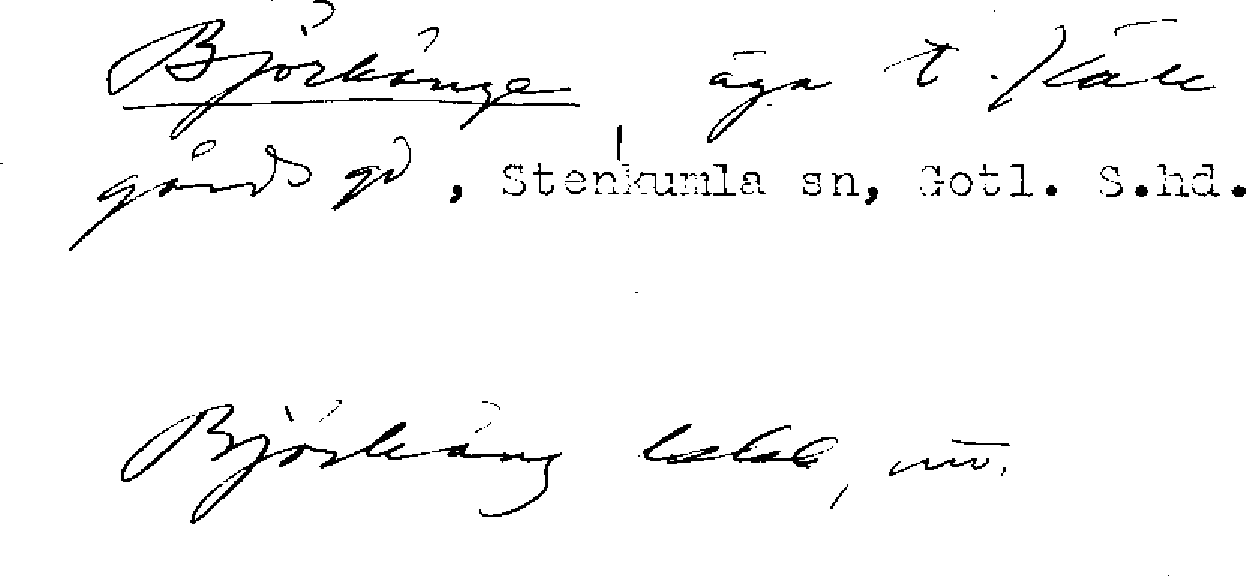 Björkänge äga t. Käll
gårds gd, Stenkumla sn, Gotl. S.hd.
Björkäng